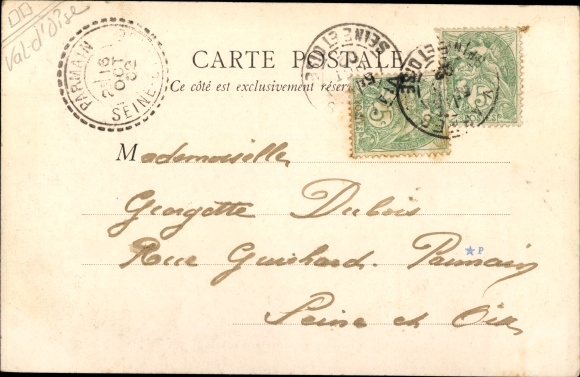 Val-d'Oise
CARTE POSTALE
Ce côté est exclusivement réservé
PARMAIN
16
OCT
02
SEINE
SEINE ET OISE
5
5
Mademoiselle
Georgette Dubois
Rue Guichard. Parmain
Seine et Oise
P